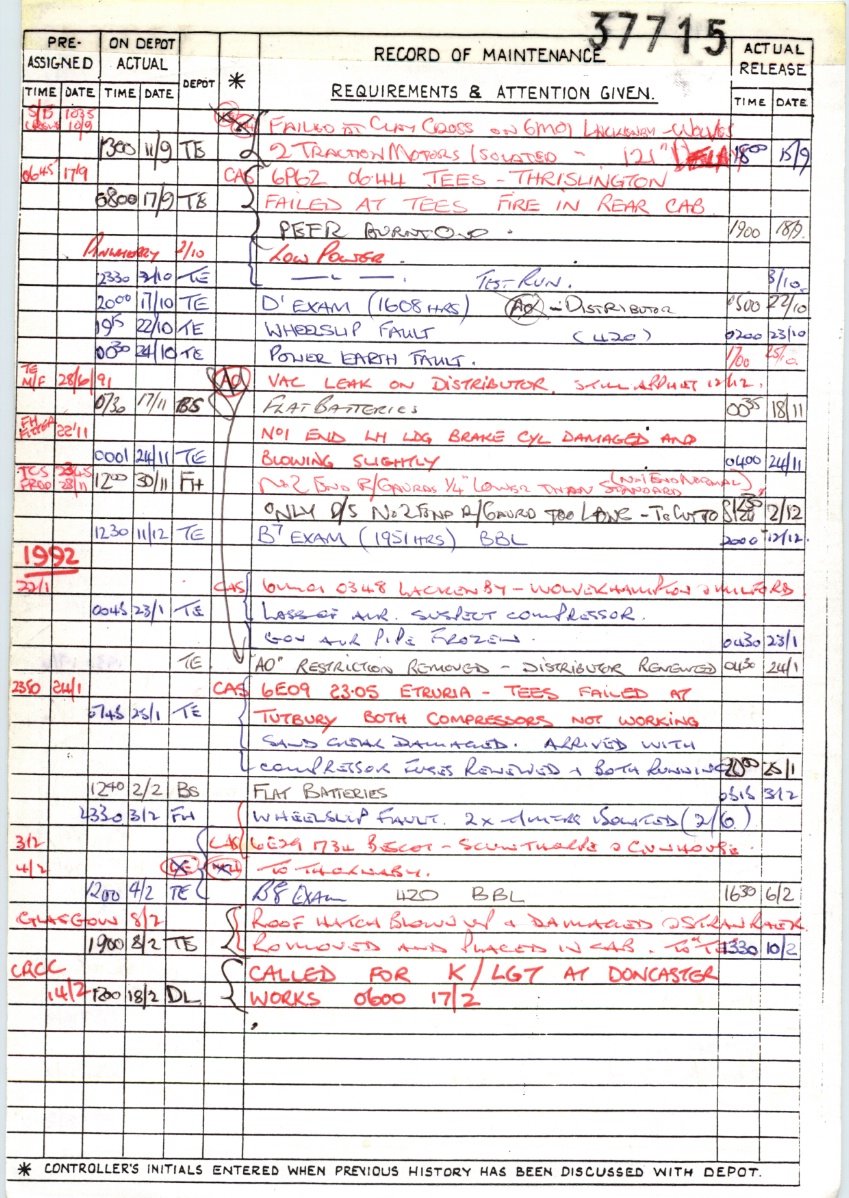 37715
PRE-ASSIGNED ON DEPOT ACTUAL DEPOT * RECORD OF MAINTENANCE REQUIREMENTS & ATTENTION GIVEN. ACTUAL RELEASE
TIME DATE TIME DATE TIME DATE
1035 10/9 FAILED AT CLAY CROSS ON 6M01 LACKENBY - WOLVES
1300 11/9 TE 2 TRACTION MOTORS ISOLATED - 1800 15/9
0645 17/9 CAS 6P62 0644 TEES - THRISLINGTON
0800 17/9 TE FAILED AT TEES FIRE IN REAR CAB
1900 18/9
2/10 LOW POWER.
2330 2/10 TE TEST RUN. 3/10
2000 17/10 TE D' EXAM (1608 HRS) AO - DISTRIBUTOR 0500 22/10
1915 22/10 TE WHEELSLIP FAULT (420) 0200 23/10
0030 24/10 TE POWER EARTH FAULT. 1700 25/10
TE N/F 28/6/91 AO VAC LEAK ON DISTRIBUTOR. STILL APP 12/12.
0130 17/11 BS FLAT BATTERIES 0035 18/11
FH 22/11 No1 END LH LDG BRAKE CYL DAMAGED AND
0001 24/11 TE BLOWING SLIGHTLY 0400 24/11
TCS 2345 28/11 1200 30/11 FH No2 END R/GAURDS 1/4" LOWER THAN STANDARD (No1 END NORMAL)
ONLY D/S No2 END R/GAURD TOO LONG - TO CUT TO 2/12
1230 11/12 TE B7 EXAM (1951 HRS) BBL 2000 12/12.
1992
22/1 CAS 6M01 0348 LACKENBY - WOLVERHAMPTON MILFORD
0045 23/1 TE LOSS OF AIR. SUSPECT COMPRESSOR.
GOV AIR PIPE FROZEN. 0430 23/1
TE "AO" RESTRICTION REMOVED - DISTRIBUTOR RENEWED 0430 24/1
2350 24/1 CAS 6E09 23.05 ETRURIA - TEES FAILED AT
0745 25/1 TE TUTBURY BOTH COMPRESSORS NOT WORKING
SAND GEAR DAMAGED. ARRIVED WITH
COMPRESSOR FUSES RENEWED + BOTH RUNNING 2000 25/1
1240 2/2 BS FLAT BATTERIES 0315 3/2
2330 3/2 FH WHEELSLIP FAULT. 2x ISOLATED (2/6)
3/2 CAS 6E29 1734 BESCOT - SCUNTHORPE GUNHOUSE.
4/2 TO THORNABY.
1200 4/2 TE B8 EXAM 420 BBL 1630 6/2
GLASGOW 8/2 ROOF HATCH BLOWN UP & DAMAGED STRANRAER
1900 8/2 TE REMOVED AND PLACED IN CAB. TO "TE" 1330 10/2
CRCC CALLED FOR K/LGT AT DONCASTER
14/2 1200 18/2 DL WORKS 0600 17/2
* CONTROLLER'S INITIALS ENTERED WHEN PREVIOUS HISTORY HAS BEEN DISCUSSED WITH DEPOT.